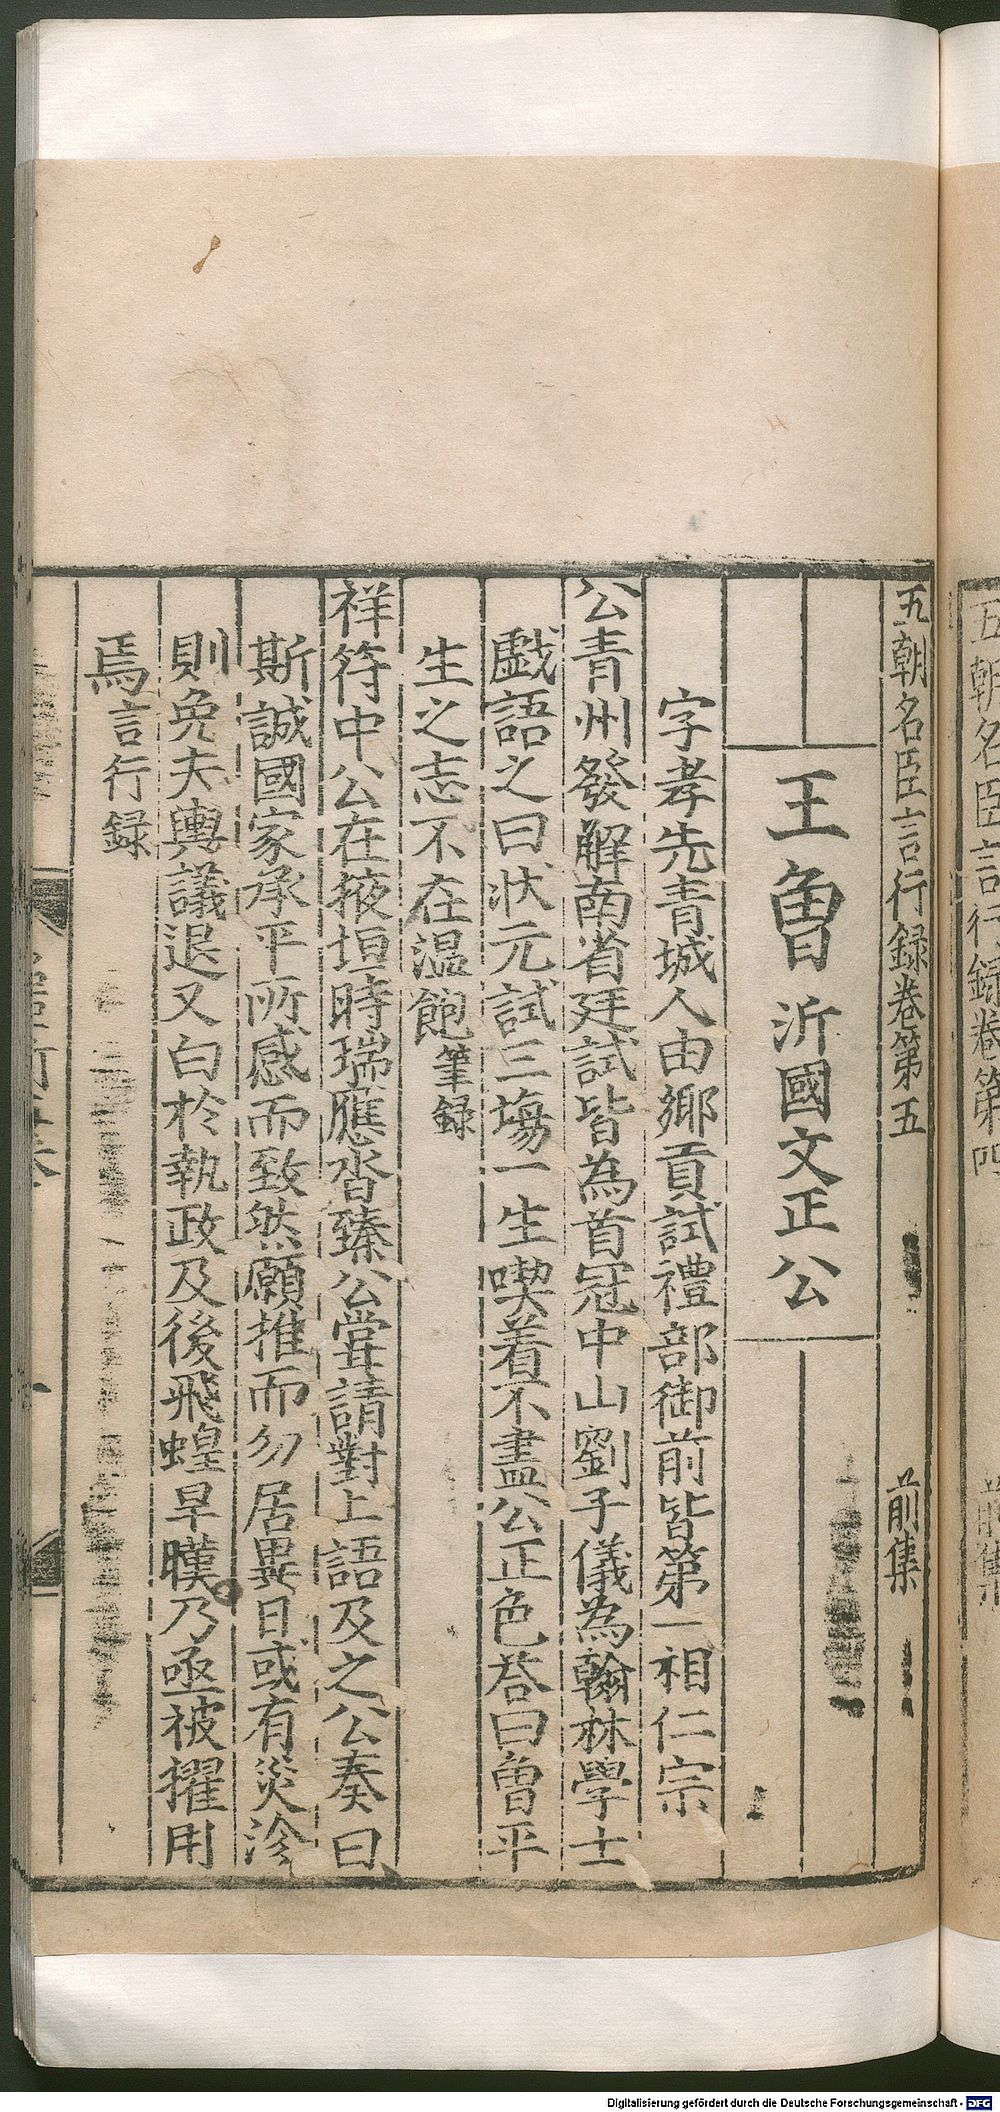 五朝名臣言行録卷第五 前集
王曾 沂國文正公
字孝先青城人由鄉貢試禮部御前皆第一相仁宗
公青州發解南省廷試皆為首冠中山劉子儀為翰林學士
戲語之曰狀元試三塲一生喫着不盡公正色荅曰曾平
生之志不在温飽筆録
祥符中公在掖垣時瑞應沓臻公甞請對上語及之公奏曰
斯誠國家承平所感而致然願推而勿居異日或有災沴
則免夫輿議退又白於執政及後飛蝗旱暵乃亟被擢用
焉言行録
五朝名臣言行録卷第四
前集
Digitalisierung gefördert durch die Deutsche Forschungsgemeinschaft - DFG